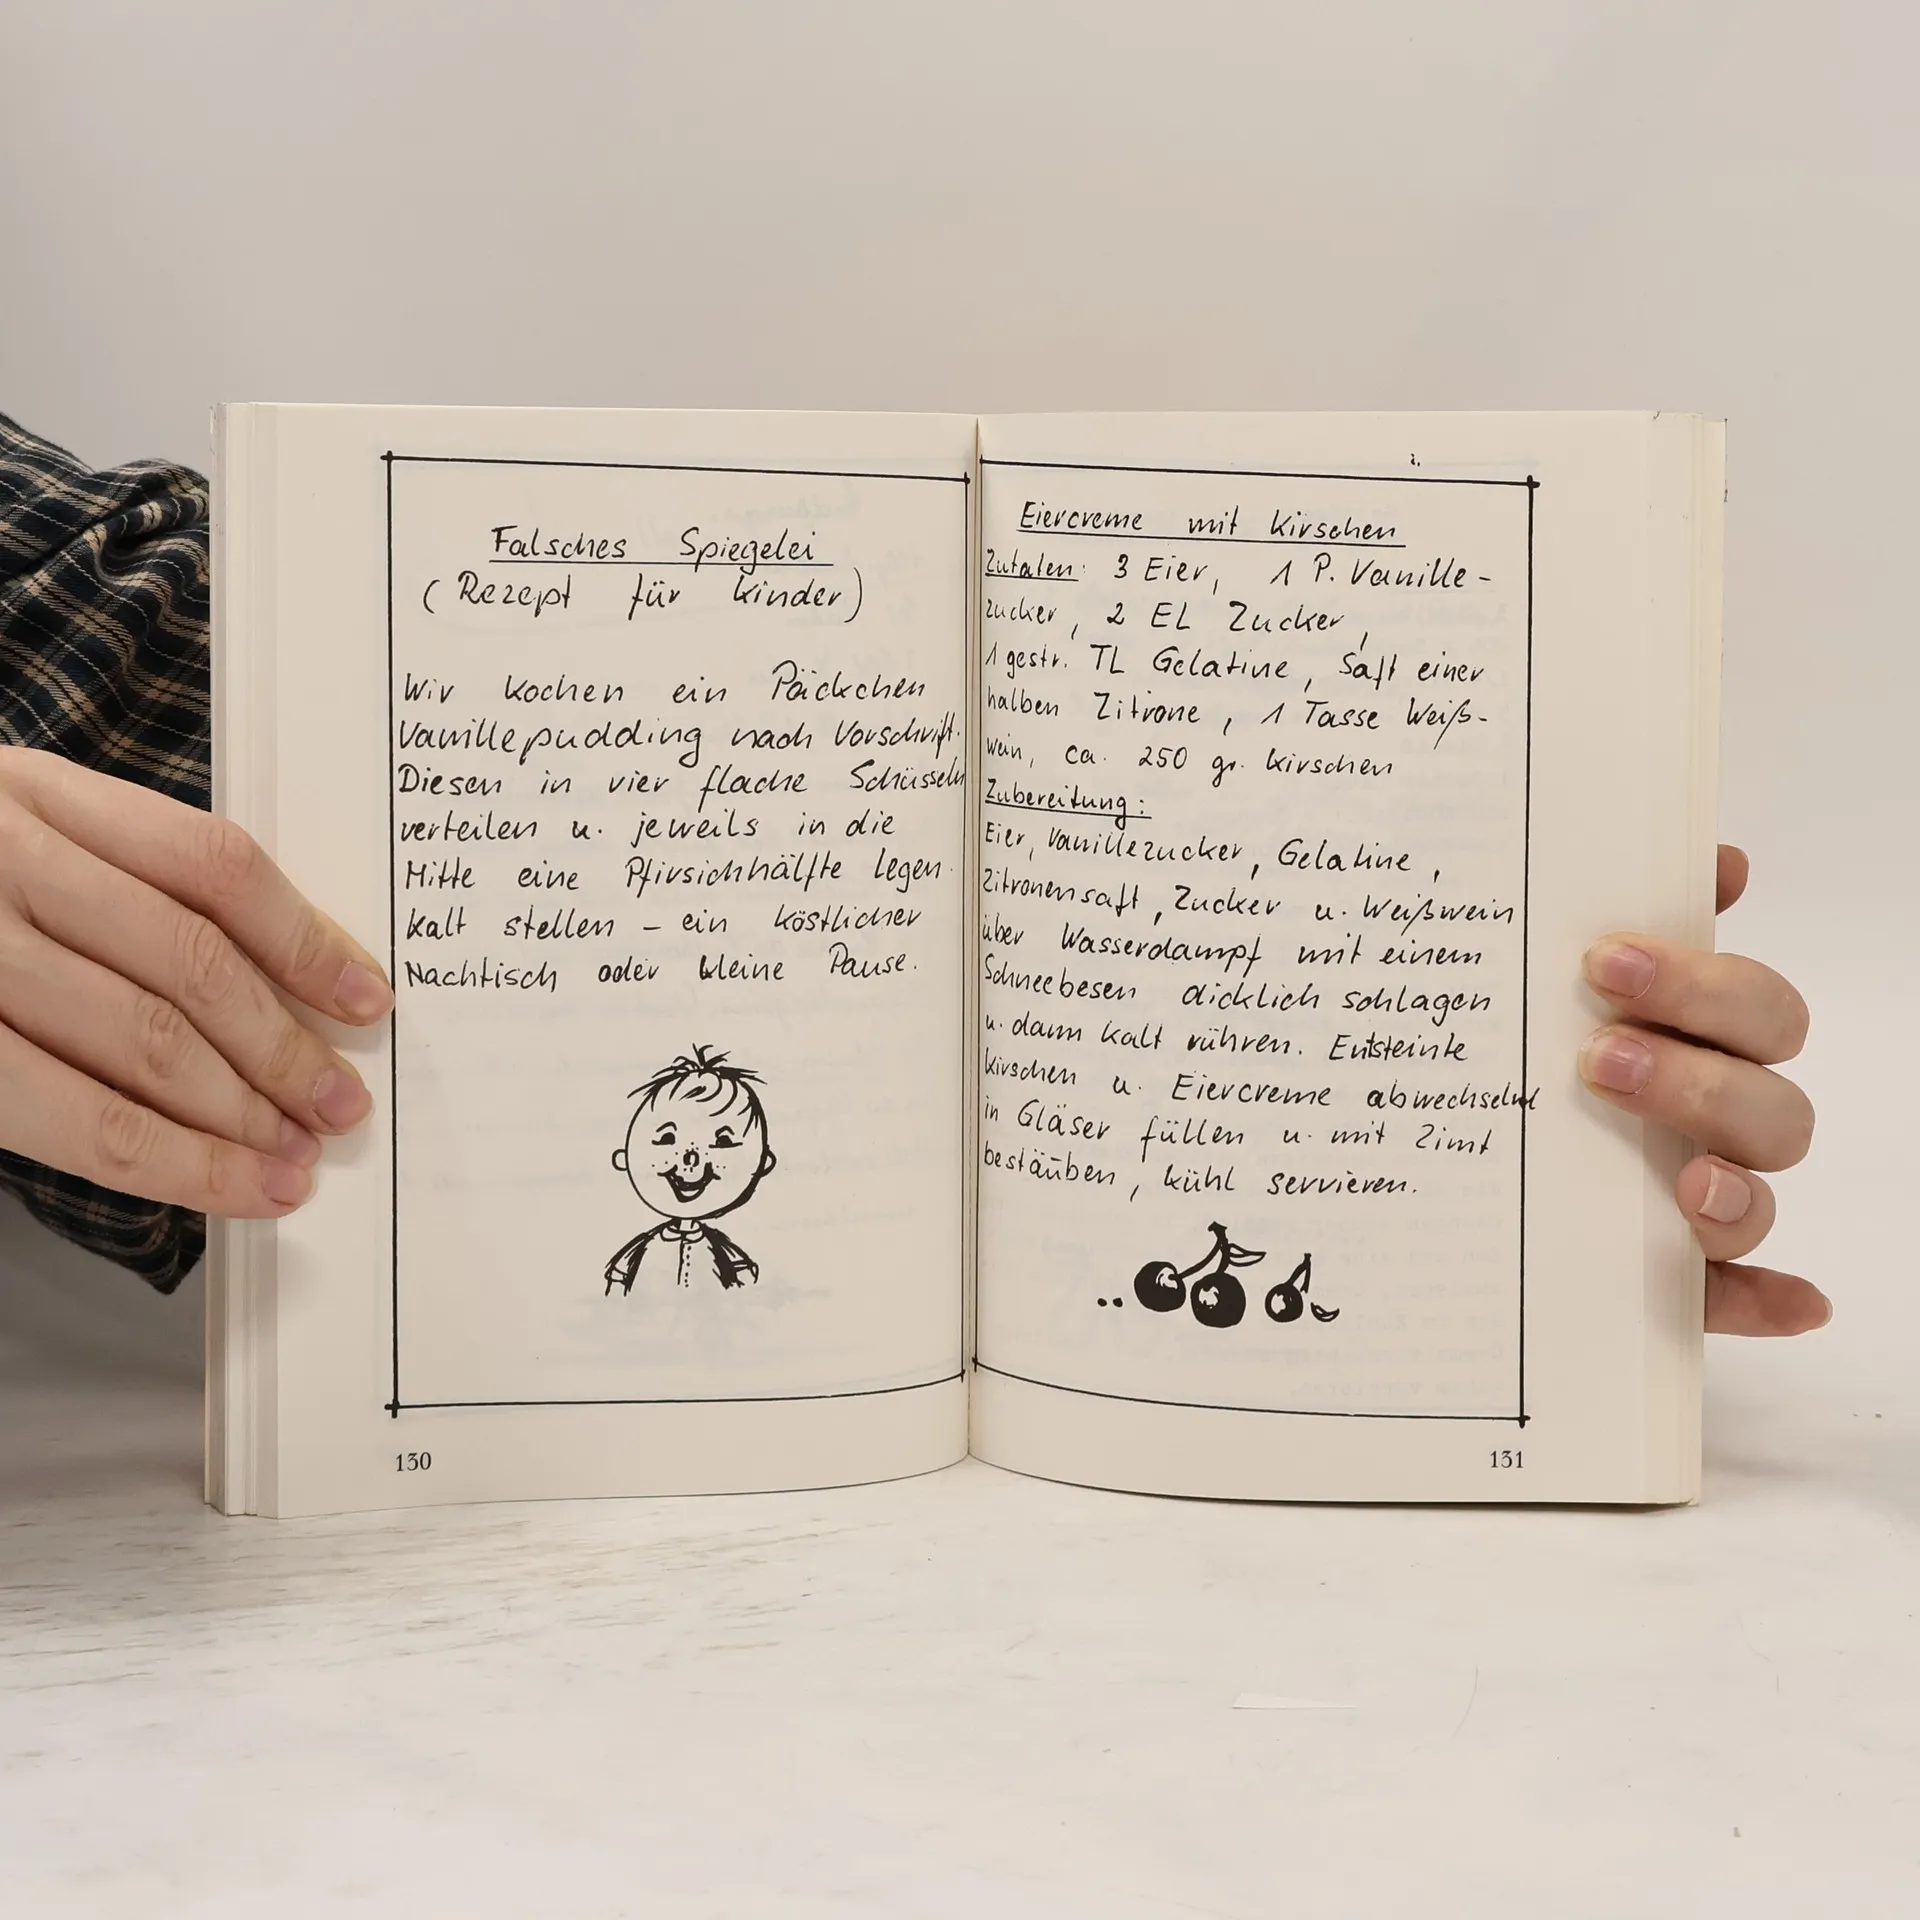 Falsches Spiegelei
(Rezept für Kinder)
Wir kochen ein Päckchen
Vanillepudding nach Vorschrift.
Diesen in vier flache Schüsseln
verteilen u. jeweils in die
Mitte eine Pfirsichhälfte legen.
Kalt stellen – ein köstlicher
Nachtisch oder kleine Pause.
130
Eiercreme mit Kirschen
Zutaten: 3 Eier, 1 P. Vanille-
zucker, 2 EL Zucker,
1 gestr. TL Gelatine, Saft einer
halben Zitrone, 1 Tasse Weiß-
wein, ca. 250 gr. Kirschen
Zubereitung:
Eier, Vanillezucker, Gelatine,
Zitronensaft, Zucker u. Weißwein
über Wasserdampf mit einem
Schneebesen dicklich schlagen
u. dann kalt rühren. Entsteinte
Kirschen u. Eiercreme abwechselnd
in Gläser füllen u. mit Zimt
bestäuben, kühl servieren.
131